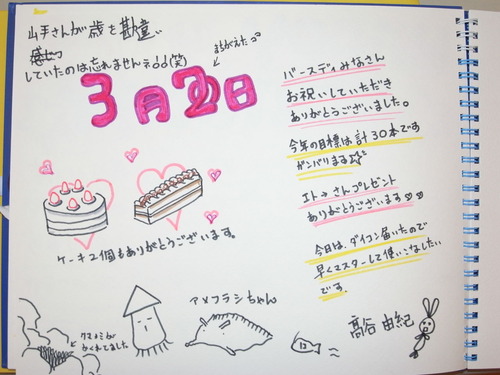 山手さんが歳を勘違い
していたのは忘れませんネ♪♪(笑)
まちがえた
3月20日
バースディみなさん
お祝いしていただき
ありがとうございました。
今年の目標は計30本です
ガンバリまる☆
エトーさんプレゼント
ありがとうございます
今日は、ダイコン届いたので
早くマスターして使いこなしたい
です。
ケーキ2個もありがとうございます。
クマノミが
かくれてました
アメフラシちゃん
高谷 由紀